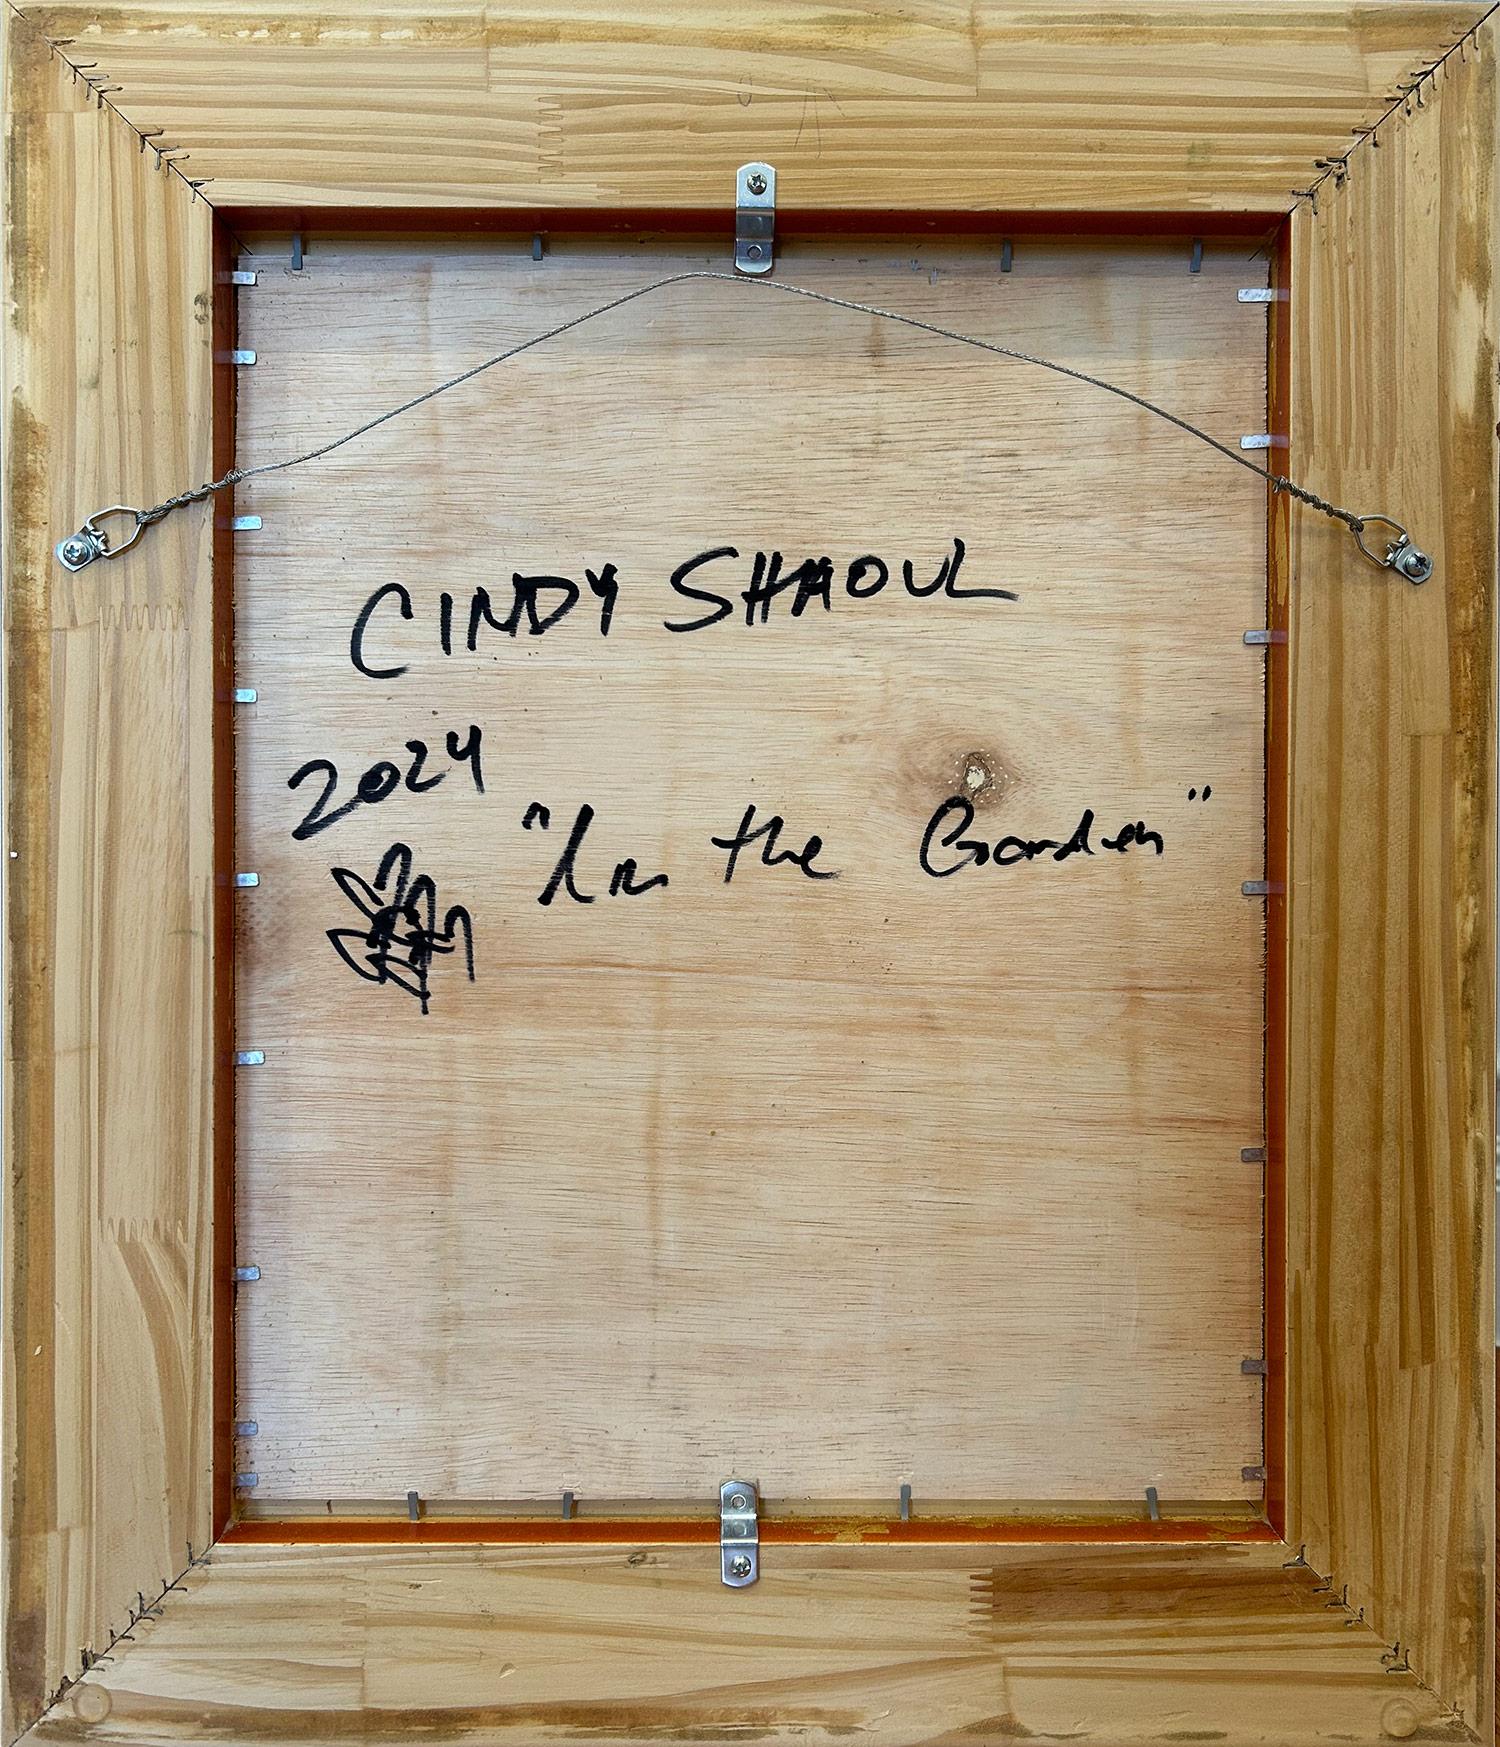 CINDY SHAOUL
2024
"In the Garden"